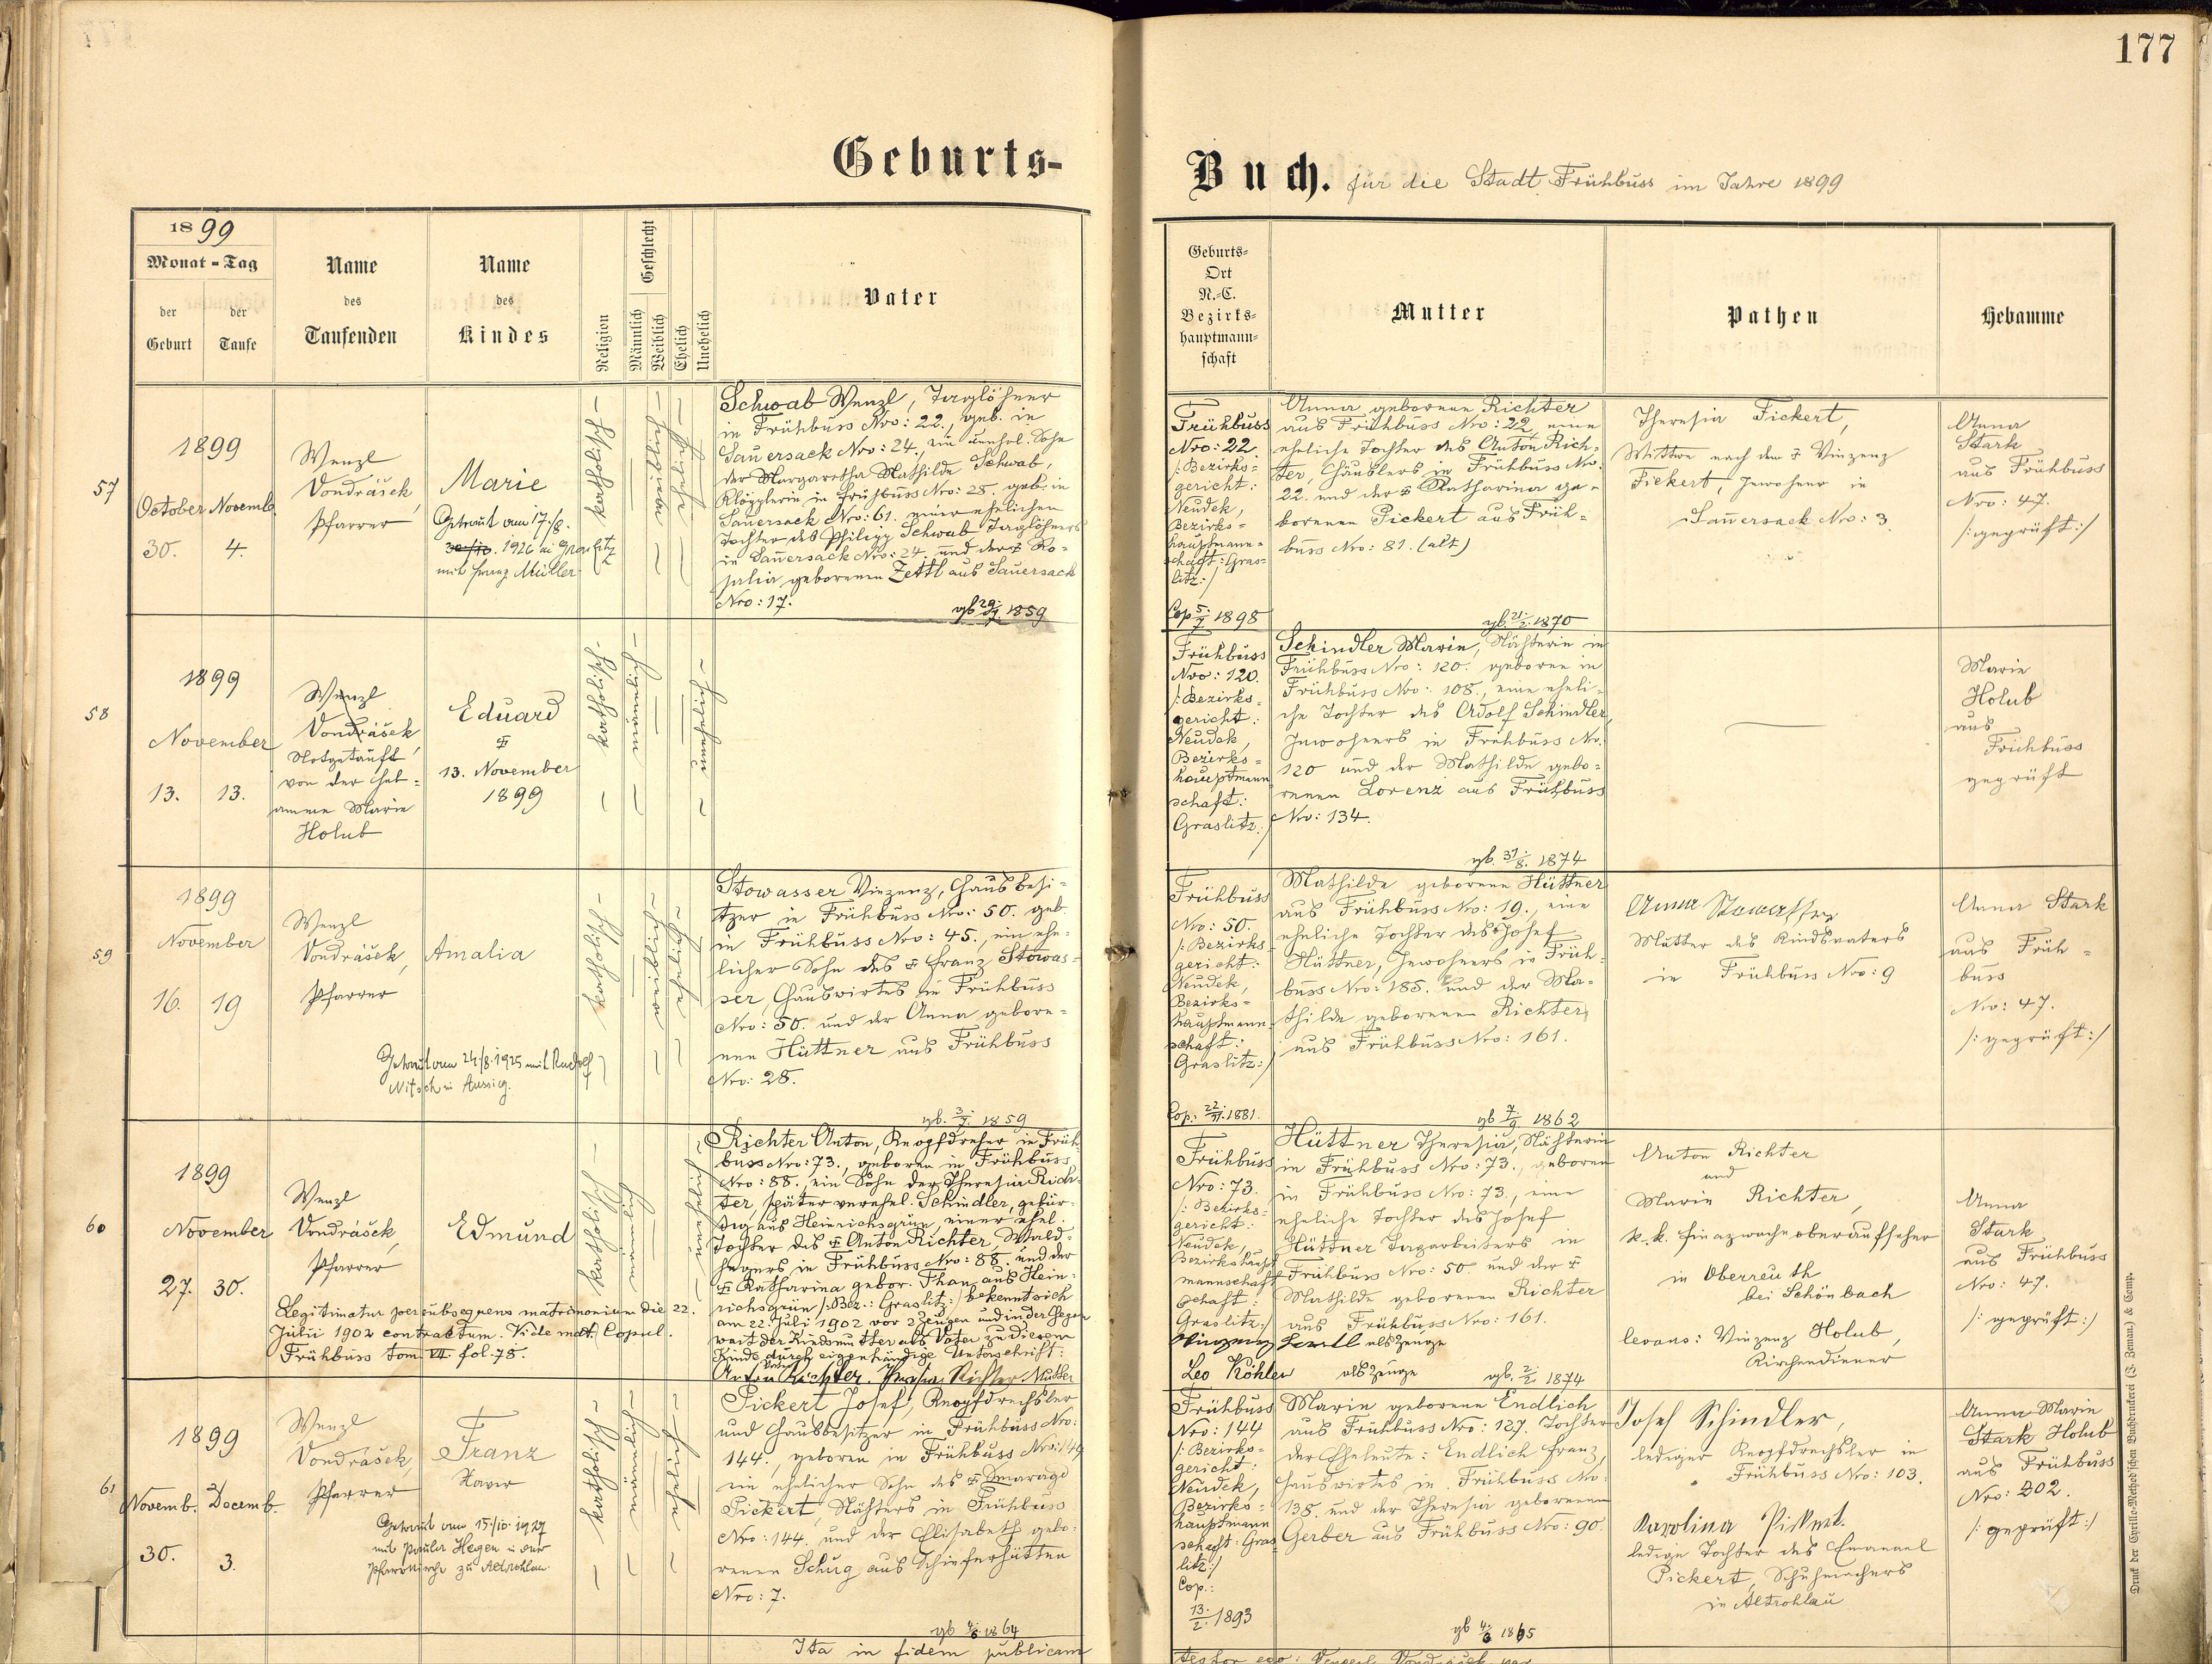 177
Geburts-
Buch. für die Stadt Frühbuss im Jahre 1899
1899
Monat - Tag
der Geburt
der Taufe
Name des Taufenden
Name des Kindes
Religion
Geschlecht
Männlich
Weiblich
Ehelich
Unehelich
Vater
Geburts-
Ort
N.-C.
Bezirks-
hauptmann-
schaft
Mutter
Pathen
Hebamme
57
1899
October Novemb.
30. 4.
Wenzl
Vondrášek,
Pfarrer
Marie
Getraut am 17./8.
1926 in Graslitz
mit Franz Müller
katholisch
weiblich
ehelich
Schwab Wenzl, Taglöhner
in Frühbuss Nro: 22., geb. in
Sauersack Nro: 24., ein unehel. Sohn
der Margaretha Mathilde Schwab,
Klöpplerin in Frühbuss Nro: 28. geb. in
Sauersack Nro: 61. einer ehelichen
Tochter des Philipp Schwab Taglöhners
in Sauersack Nro: 24. und der † Ro-
salia geborenen Zettl aus Sauersack
Nro: 17.
gb 29. 1859
Frühbuss
Nro: 22.
/: Bezirks-
gericht:
Neudek,
Bezirks-
hauptmann-
schaft: Gras-
litz:/
Cop 5./7. 1898
Anna geborene Richter
aus Frühbuss Nro: 22, eine
eheliche Tochter des Anton Rich-
ter, Häuslers in Frühbuss Nro:
22. und der † Katharina ge-
borenen Pickert aus Früh-
buss Nro: 81. (alt)
gb. 21./2. 1870
Theresia Fickert,
Wittwe nach dem † Vinzenz
Fickert, Inwohner in
Sauersack Nro: 3.
Anna
Stark
aus Frühbuss
Nro: 47.
/: geprüft :/
58
1899
November
13. 13.
Wenzl
Vondrášek,
Notgetauft
von der Heb-
amme Marie
Holub
Eduard
†
13. November
1899
katholisch
männlich
unehelich
Frühbuss
Nro: 120.
/: Bezirks-
gericht:
Neudek,
Bezirks-
hauptmann
schaft:
Graslitz:/
Schindler Marie, Nähterin in
Frühbuss Nro: 120. geboren in
Frühbuss Nro: 108., eine eheli-
che Tochter des Adolf Schindler,
Inwohners in Frühbuss Nr.
120 und der Mathilde gebo-
renen Lorenz aus Frühbuss
Nro: 134.
gb. 31./8. 1874
Marie
Holub
aus
Frühbuss
geprüft
59
1899
November
16. 19
Wenzl
Vondrášek,
Pfarrer
Amalia
Getraut am 24./8. 1925 mit Rudolf
Nitsch in Aussig.
katholisch
weiblich
ehelich
Stowasser Vinzenz, Hausbesi-
tzer in Frühbuss Nro: 50. geb.
in Frühbuss Nro: 45., ein ehe-
licher Sohn des † Franz Stowas-
ser, Hauswirtes in Frühbuss
Nro: 50. und der Anna gebore-
nen Hüttner aus Frühbuss
Nro: 28.
gb. 3./7. 1859
Frühbuss
Nro: 50.
/: Bezirks-
gericht:
Neudek,
Bezirks-
hauptmann-
schaft:
Graslitz:/
Cop: 22./11. 1881.
Mathilde geborene Hüttner
aus Frühbuss Nro: 19., eine
eheliche Tochter des Josef
Hüttner, Inwohners in Früh-
buss Nro: 185. und der Ma-
thilde geborenen Richter
aus Frühbuss Nro: 161.
gb 7./9. 1862
Anna Stowasser
Mutter des Kindsvaters
in Frühbuss Nro: 9
Anna Stark
aus Früh-
buss
Nro: 47.
/: geprüft :/
60
1899
November
27. 30.
Wenzl
Vondrášek,
Pfarrer
Edmund
Legitimatur per subsequens matrimonium die 22.
Julii 1902 contractum. Vide mat. Copul.
Frühbuss tom. VI. fol. 78.
katholisch
männlich
unehelich
Richter Anton, Knopfdreher in Früh-
buss Nro: 73., geboren in Frühbuss
Nro: 88., ein Sohn der Theresia Rich-
ter, später verehel. Schindler, gebür-
tig aus Heinrichsgrün, einer ehel.
Tochter des † Anton Richter, Wald-
hegers in Frühbuss Nro: 88. und der
† Katharina gebor. Than aus Hein-
richsgrün /: Bez.: Graslitz :/ bekennt sich
am 22. Juli 1902 vor 2 Zeugen und in der Gegen-
wart der Kindsmutter als Vater zu diesem
Kinde durch eigenhändige Unterschrift:
Anton Richter. Vater Theresia Richter Mutter
Frühbuss
Nro: 73.
/: Bezirks-
gericht:
Neudek,
Bezirkshaupt
mannschaft
schaft:
Graslitz:/
als Zeuge
Leo Köhler als Zeuge
Hüttner Theresia, Nähterin
in Frühbuss Nro: 73., geboren
in Frühbuss Nro: 73., eine
eheliche Tochter des Josef
Hüttner Tagarbeiters in
Frühbuss Nro: 50 und der †
Mathilde geborenen Richter
aus Frühbuss Nro: 161.
gb. 2./2. 1874
Anton Richter
und
Marie Richter,
k. k. Finanzwachoberaufseher
in Oberreuth
bei Schönbach
levans: Vinzenz Holub,
Kirchendiener
Anna
Stark
aus Frühbuss
Nro: 47.
/: geprüft :/
61
1899
Novemb. Decemb.
30. 3.
Wenzl
Vondrášek,
Pfarrer
Franz
Xaver
Getraut am 15./10. 1927
mit Paula Hegen in der
Pfarrkirche zu Altrohlau
katholisch
männlich
ehelich
Pickert Josef, Knopfdrechsler
und Hausbesitzer in Frühbuss Nro:
144., geboren in Frühbuss Nro: 144
ein ehelicher Sohn des † Smaragd
Pickert, Nähters in Frühbuss
Nro: 144. und der Elisabeth gebo-
renen Schug aus Schieferhütten
Nro: 7.
gb 4./6. 1864
Frühbuss
Nro: 144
/: Bezirks-
gericht:
Neudek,
Bezirks-
hauptmann
schaft: Gras
litz:/
Cop.:
13./2. 1893
Marie geborene Endlich
aus Frühbuss Nro: 127. Tochter
der Eheleute: Endlich Franz,
Hauswirtes in Frühbuss Nro:
138. und der Theresia geborenen
Gerber aus Frühbuss Nro: 90.
gb 4./6 1865
Josef Schindler,
lediger Knopfdrechsler in
Frühbuss Nro: 103.
Karolina Pickert.
ledige Tochter des Emanuel
Pickert, Schuhmachers
in Altrohlau
Anna Marie
Stark Holub
aus Frühbuss
Nro: 202.
/: geprüft :/
Ita in fidem publicam
testor ego: Venzesl. Vondrášek
Druck der Cyrillo-Method'schen Buchdruckerei (J. Zeman) & Comp.